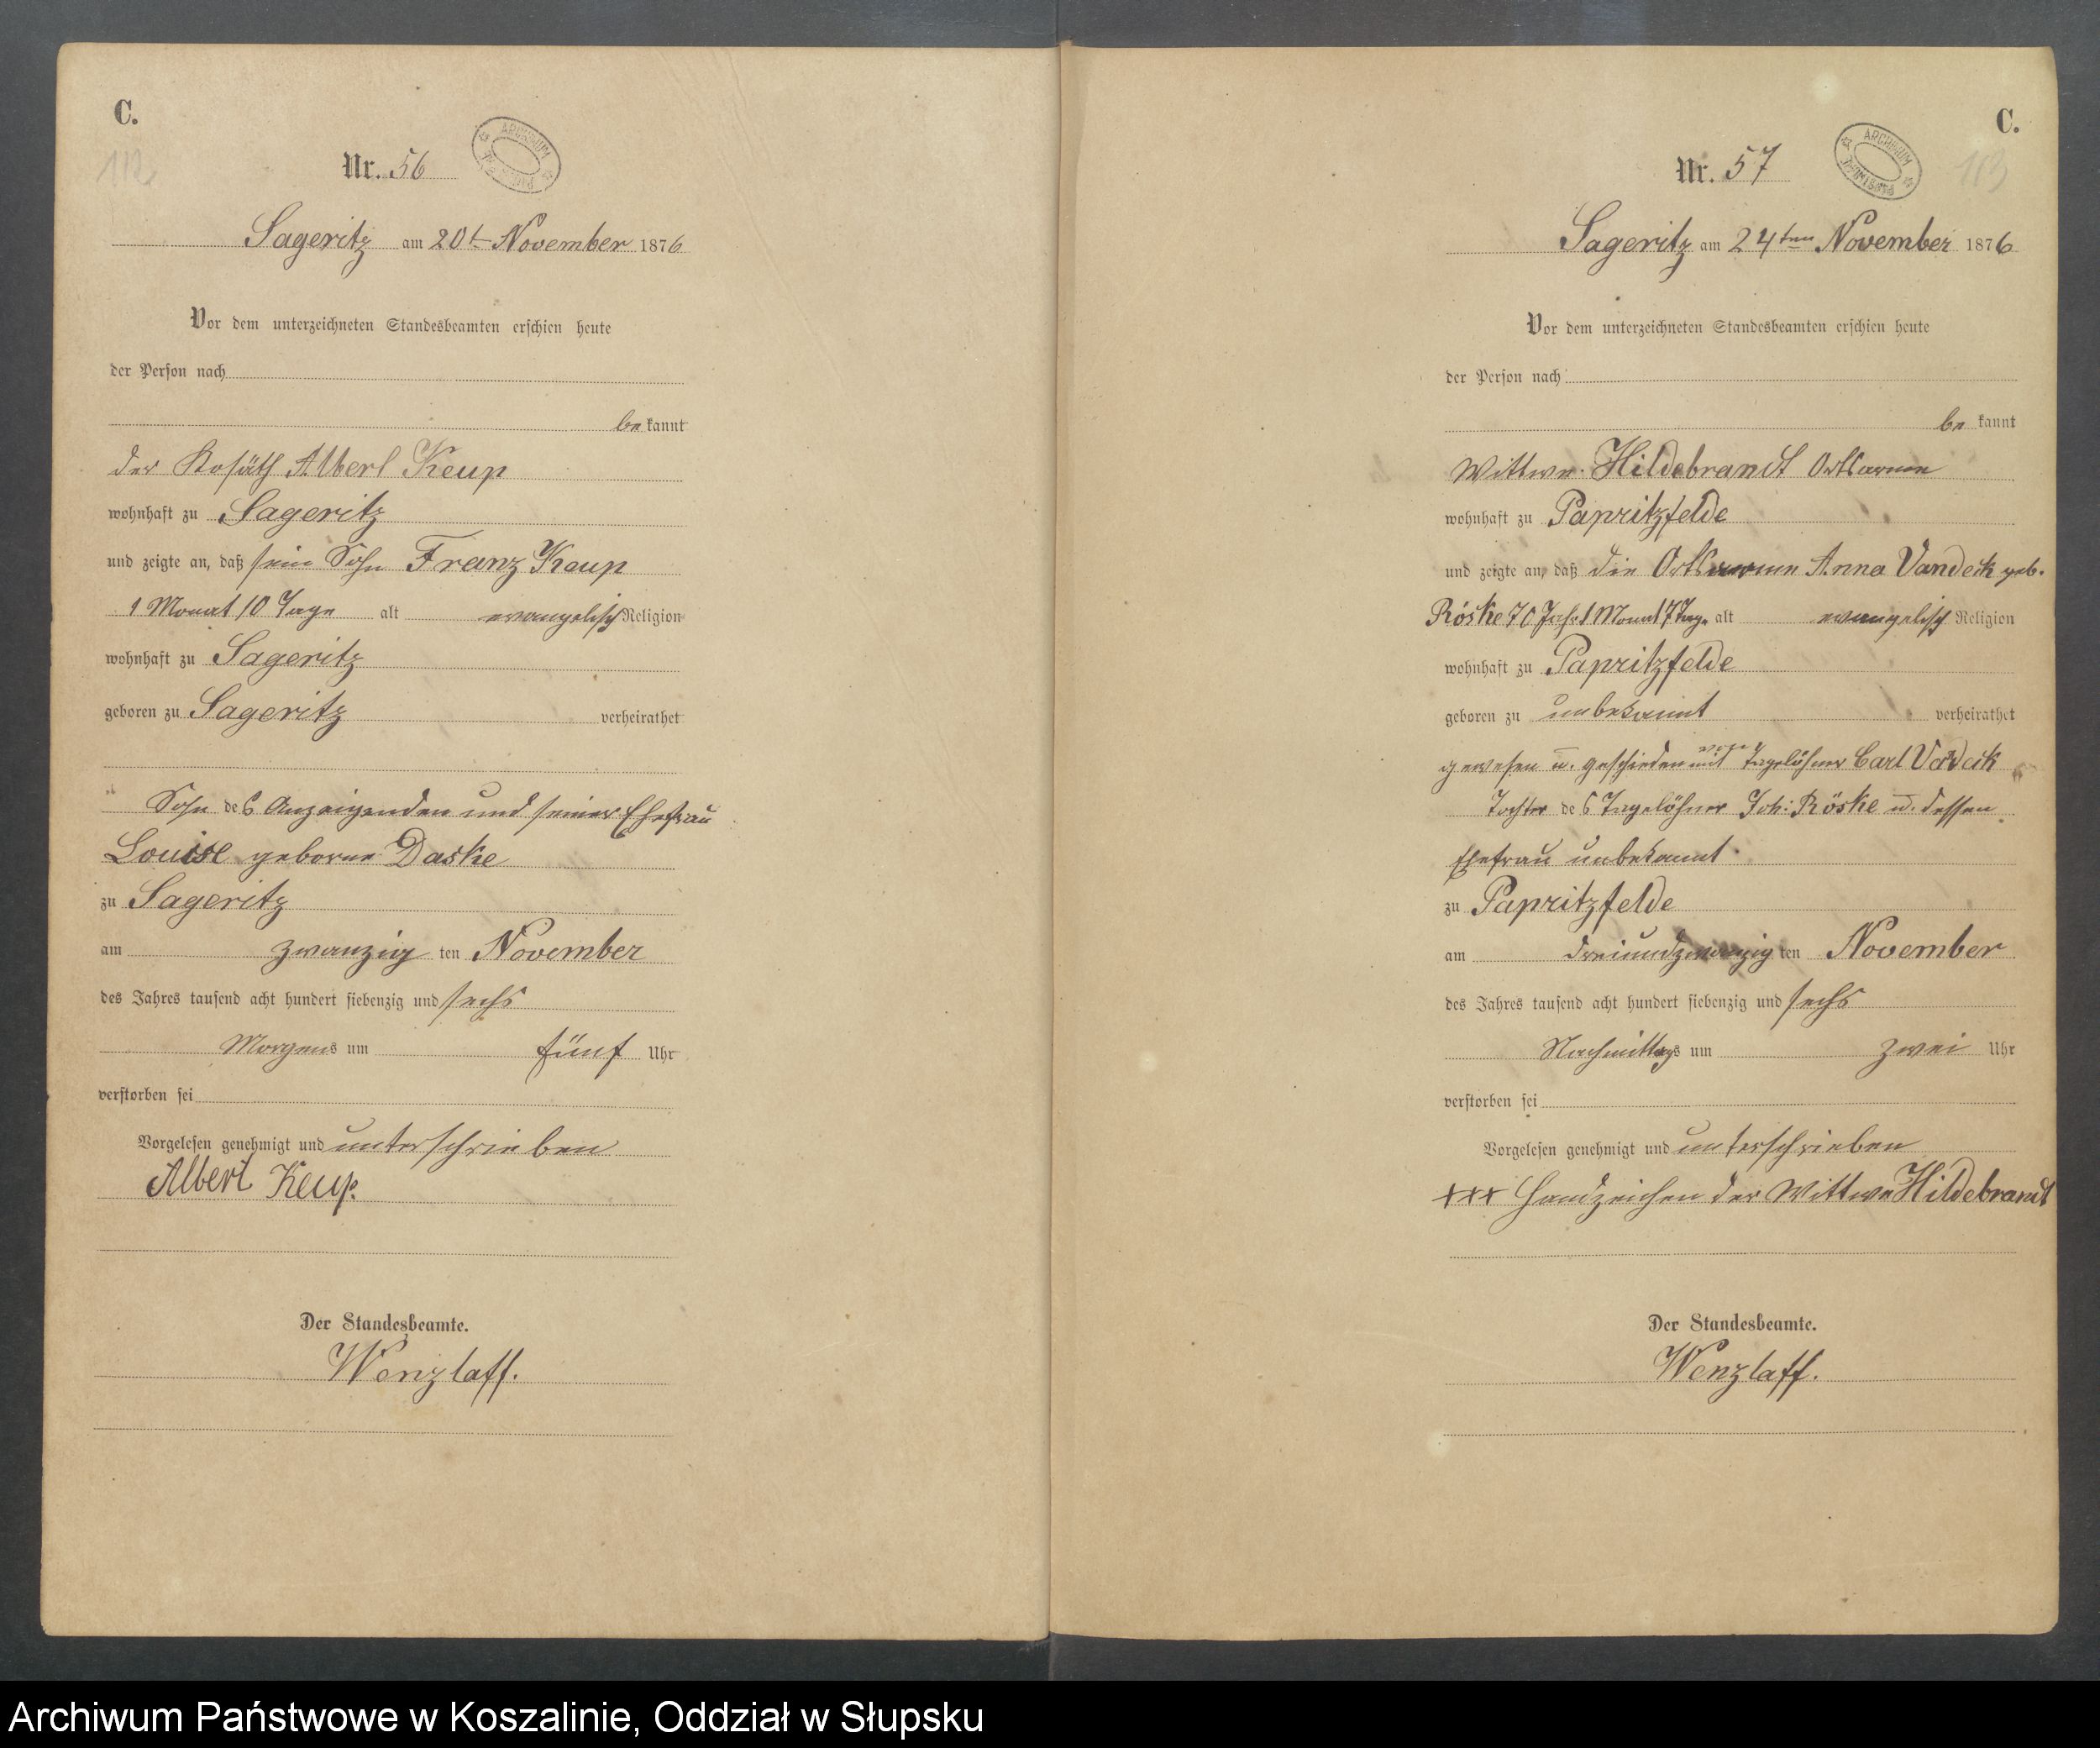 C.
Nr. 56
ARCHIWUM
Sageritz am 20t November 1876
Vor dem unterzeichneten Standesbeamten erschien heute
der Person nach
be kannt
der Kosäth Albert Keup
wohnhaft zu Sageritz
und zeigte an, daß sein Sohn Franz Keup
1 Monat 10 Tage alt evangelisch Religion
wohnhaft zu Sageritz
geboren zu Sageritz verheirathet
Sohn des Anzeigenden und seiner Ehefrau
Louise geborne Daske
zu Sageritz
am zwanzig ten November
des Jahres tausend acht hundert siebenzig und sechs
Morgens um fünf Uhr
verstorben sei
Vorgelesen genehmigt und unterschrieben
Albert Keup.
Der Standesbeamte.
Wenzlaff.
C.
Nr. 57
ARCHIWUM
113
Sageritz am 24ten November 1876
Vor dem unterzeichneten Standesbeamten erschien heute
der Person nach
be kannt
Wittwe Hildebrandt Ortsarme
wohnhaft zu Papritzfelde
und zeigte an, daß die Ortsarme Anna Vandeck geb.
Röske 70 Jahr 1 Monat 7 Tage alt evangelisch Religion
wohnhaft zu Papritzfelde
geboren zu unbekannt verheirathet
gewesen u. geschieden mit Tagelöhner Carl
Tochter des Tagelöhner Joh: Röske u. dessen
Ehefrau unbekannt.
zu Papritzfelde
am dreiundzwanzig ten November
des Jahres tausend acht hundert siebenzig und sechs
Nachmittags um zwei Uhr
verstorben sei
Vorgelesen genehmigt und unterschrieben
+++ Handzeichen der Wittwe Hildebrandt
Der Standesbeamte.
Wenzlaff.
Archiwum Państwowe w Koszalinie, Oddział w Słupsku